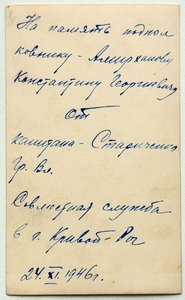 На память подпол
ковнику - Амирханову
Константину Георгиевичу
От
капитана - Стариченко
Гр. Вл.
Совместная служба
в г. Кривой-Рог
24. XI. 1946 г.